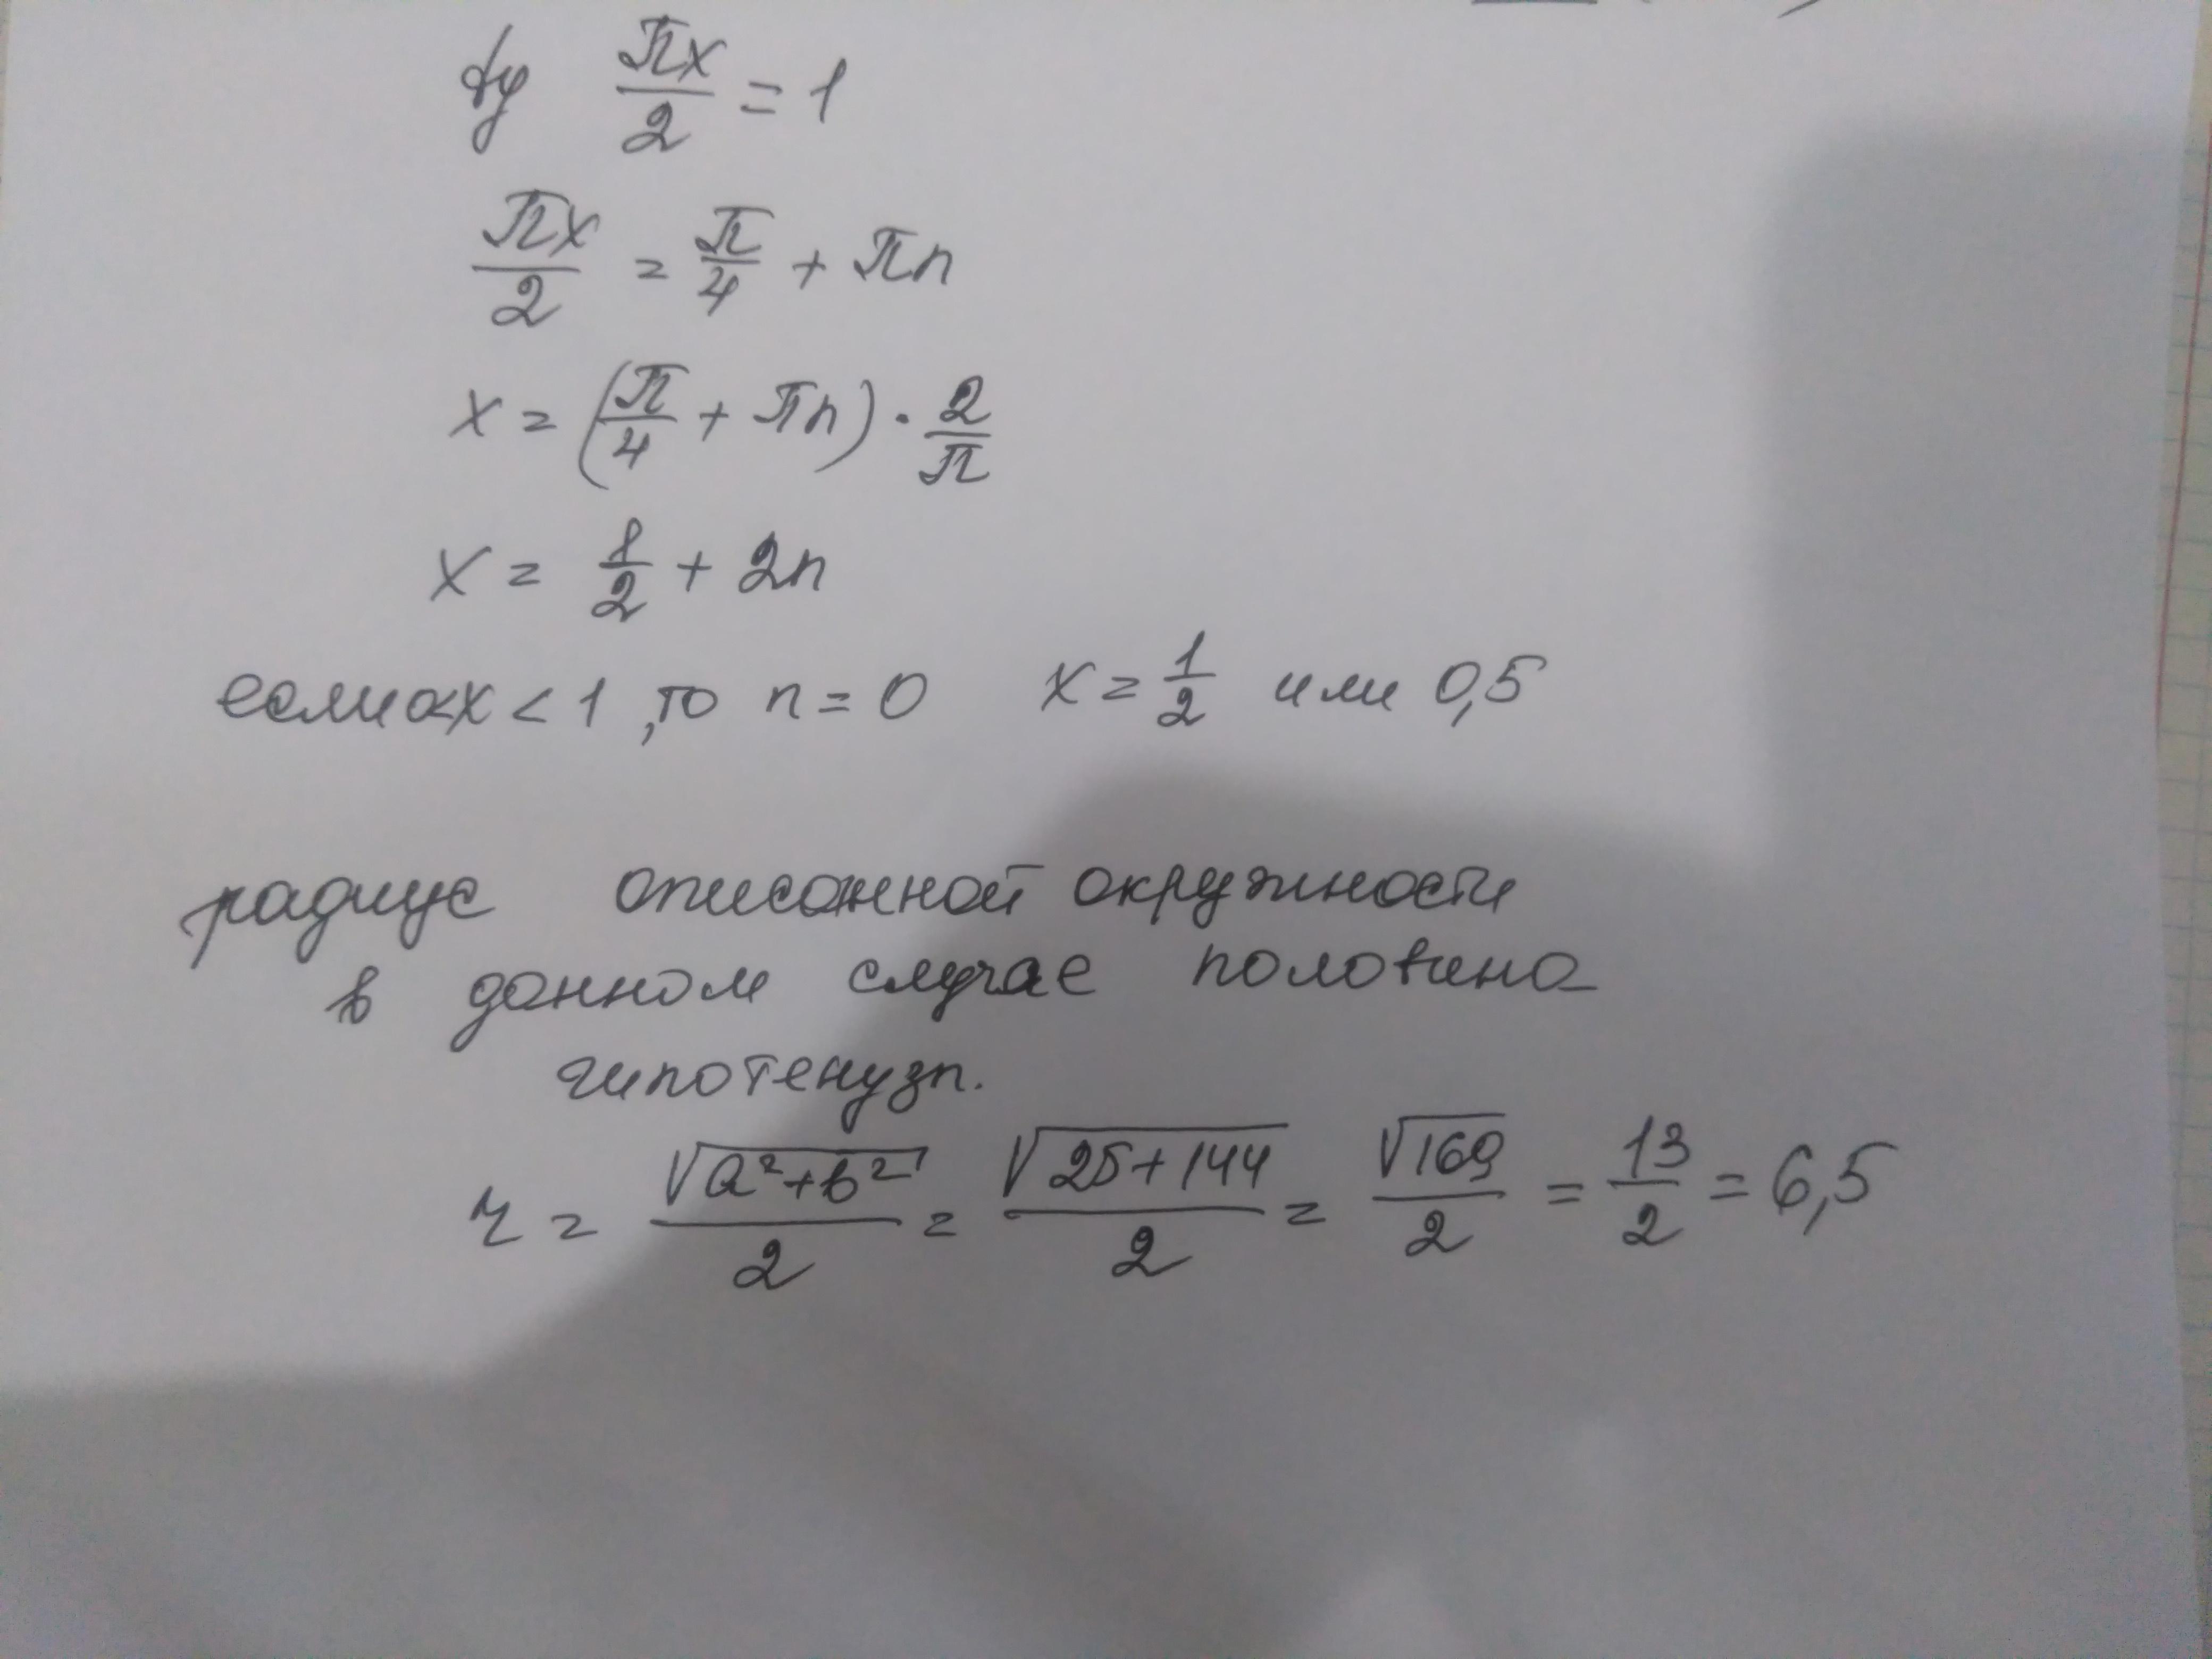 tg πx/2 = 1
πx/2 = π/4 + πn
x = (π/4 + πn) · 2/π
x = 1/2 + 2n
если x < 1, то n = 0 x = 1/2 или 0,5
радиус описанной окружности
в данном случае половина
гипотенузы.
r = √(a²+b²)/2 = √(25+144)/2 = √169/2 = 13/2 = 6,5